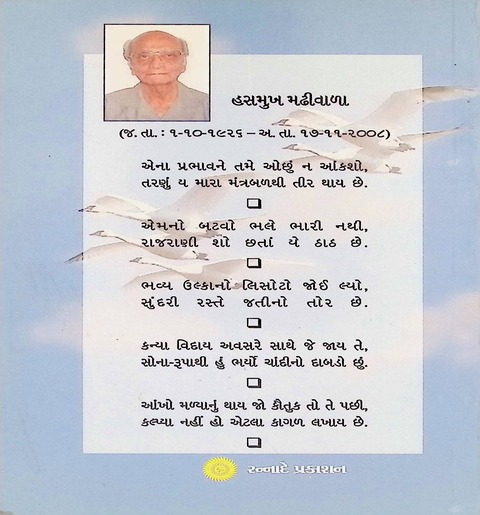 હસમુખ મઢીવાળા
(જ. તા. : ૧-૧૦-૧૯૨૬ – અ. તા. ૧૭-૧૧-૨૦૦૮)
એના પ્રભાવને તમે ઓછું ન આંકશો,
તરણું ય મારા મંત્રબળથી તીર થાય છે.
એમનો બટવો ભલે ભારી નથી,
રાજરાણી શો છતાં યે ઠાઠ છે.
ભવ્ય ઉલ્કાનો લિસોટો જોઈ લ્યો,
સુંદરી રસ્તે જતીનો તોર છે.
કન્યા વિદાય અવસરે સાથે જે જાય તે,
સોના-રૂપાથી હું ભર્યો ચાંદીનો દાબડો છું.
આંખો મળ્યાનું થાય જો કૌતુક તો તે પછી,
કલ્પ્યા નહીં હો એટલા કાગળ લખાય છે.
રન્નાદે પ્રકાશન